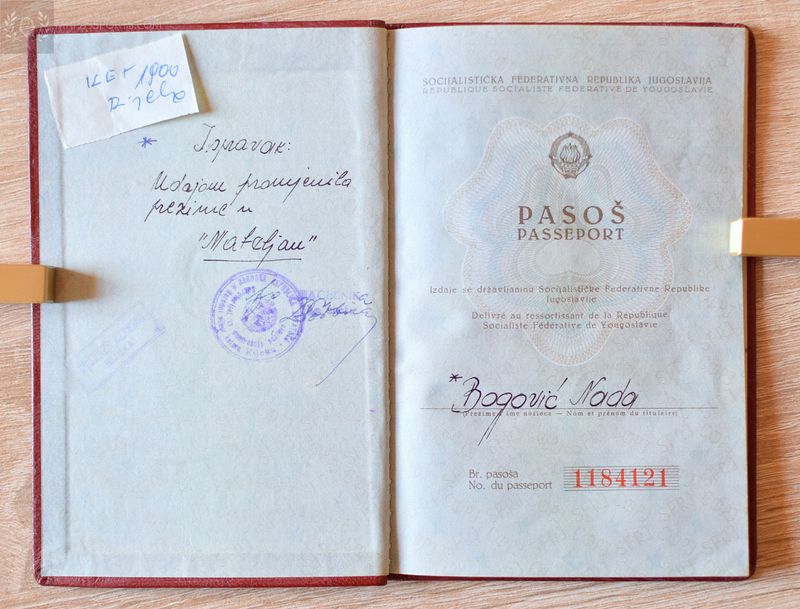 KET 1900
* Ispravak:
Udajom promjenila
prezime u
"Mateljan"
SOCIJALISTIČKA FEDERATIVNA REPUBLIKA JUGOSLAVIJA
REPUBLIQUE SOCIALISTE FEDERATIVE DE YOUGOSLAVIE
PASOŠ
PASSEPORT
Izdaje se državljaninu Socijalističke Federativne Republike
Jugoslavije
Délivré au ressortissant de la République
Socialiste Fédérative de Yougoslavie
* Bogović Nada
(Prezime i ime nosioca — Nom et prénom du titulaire)
Br. pasoša
No. du passeport
1184121